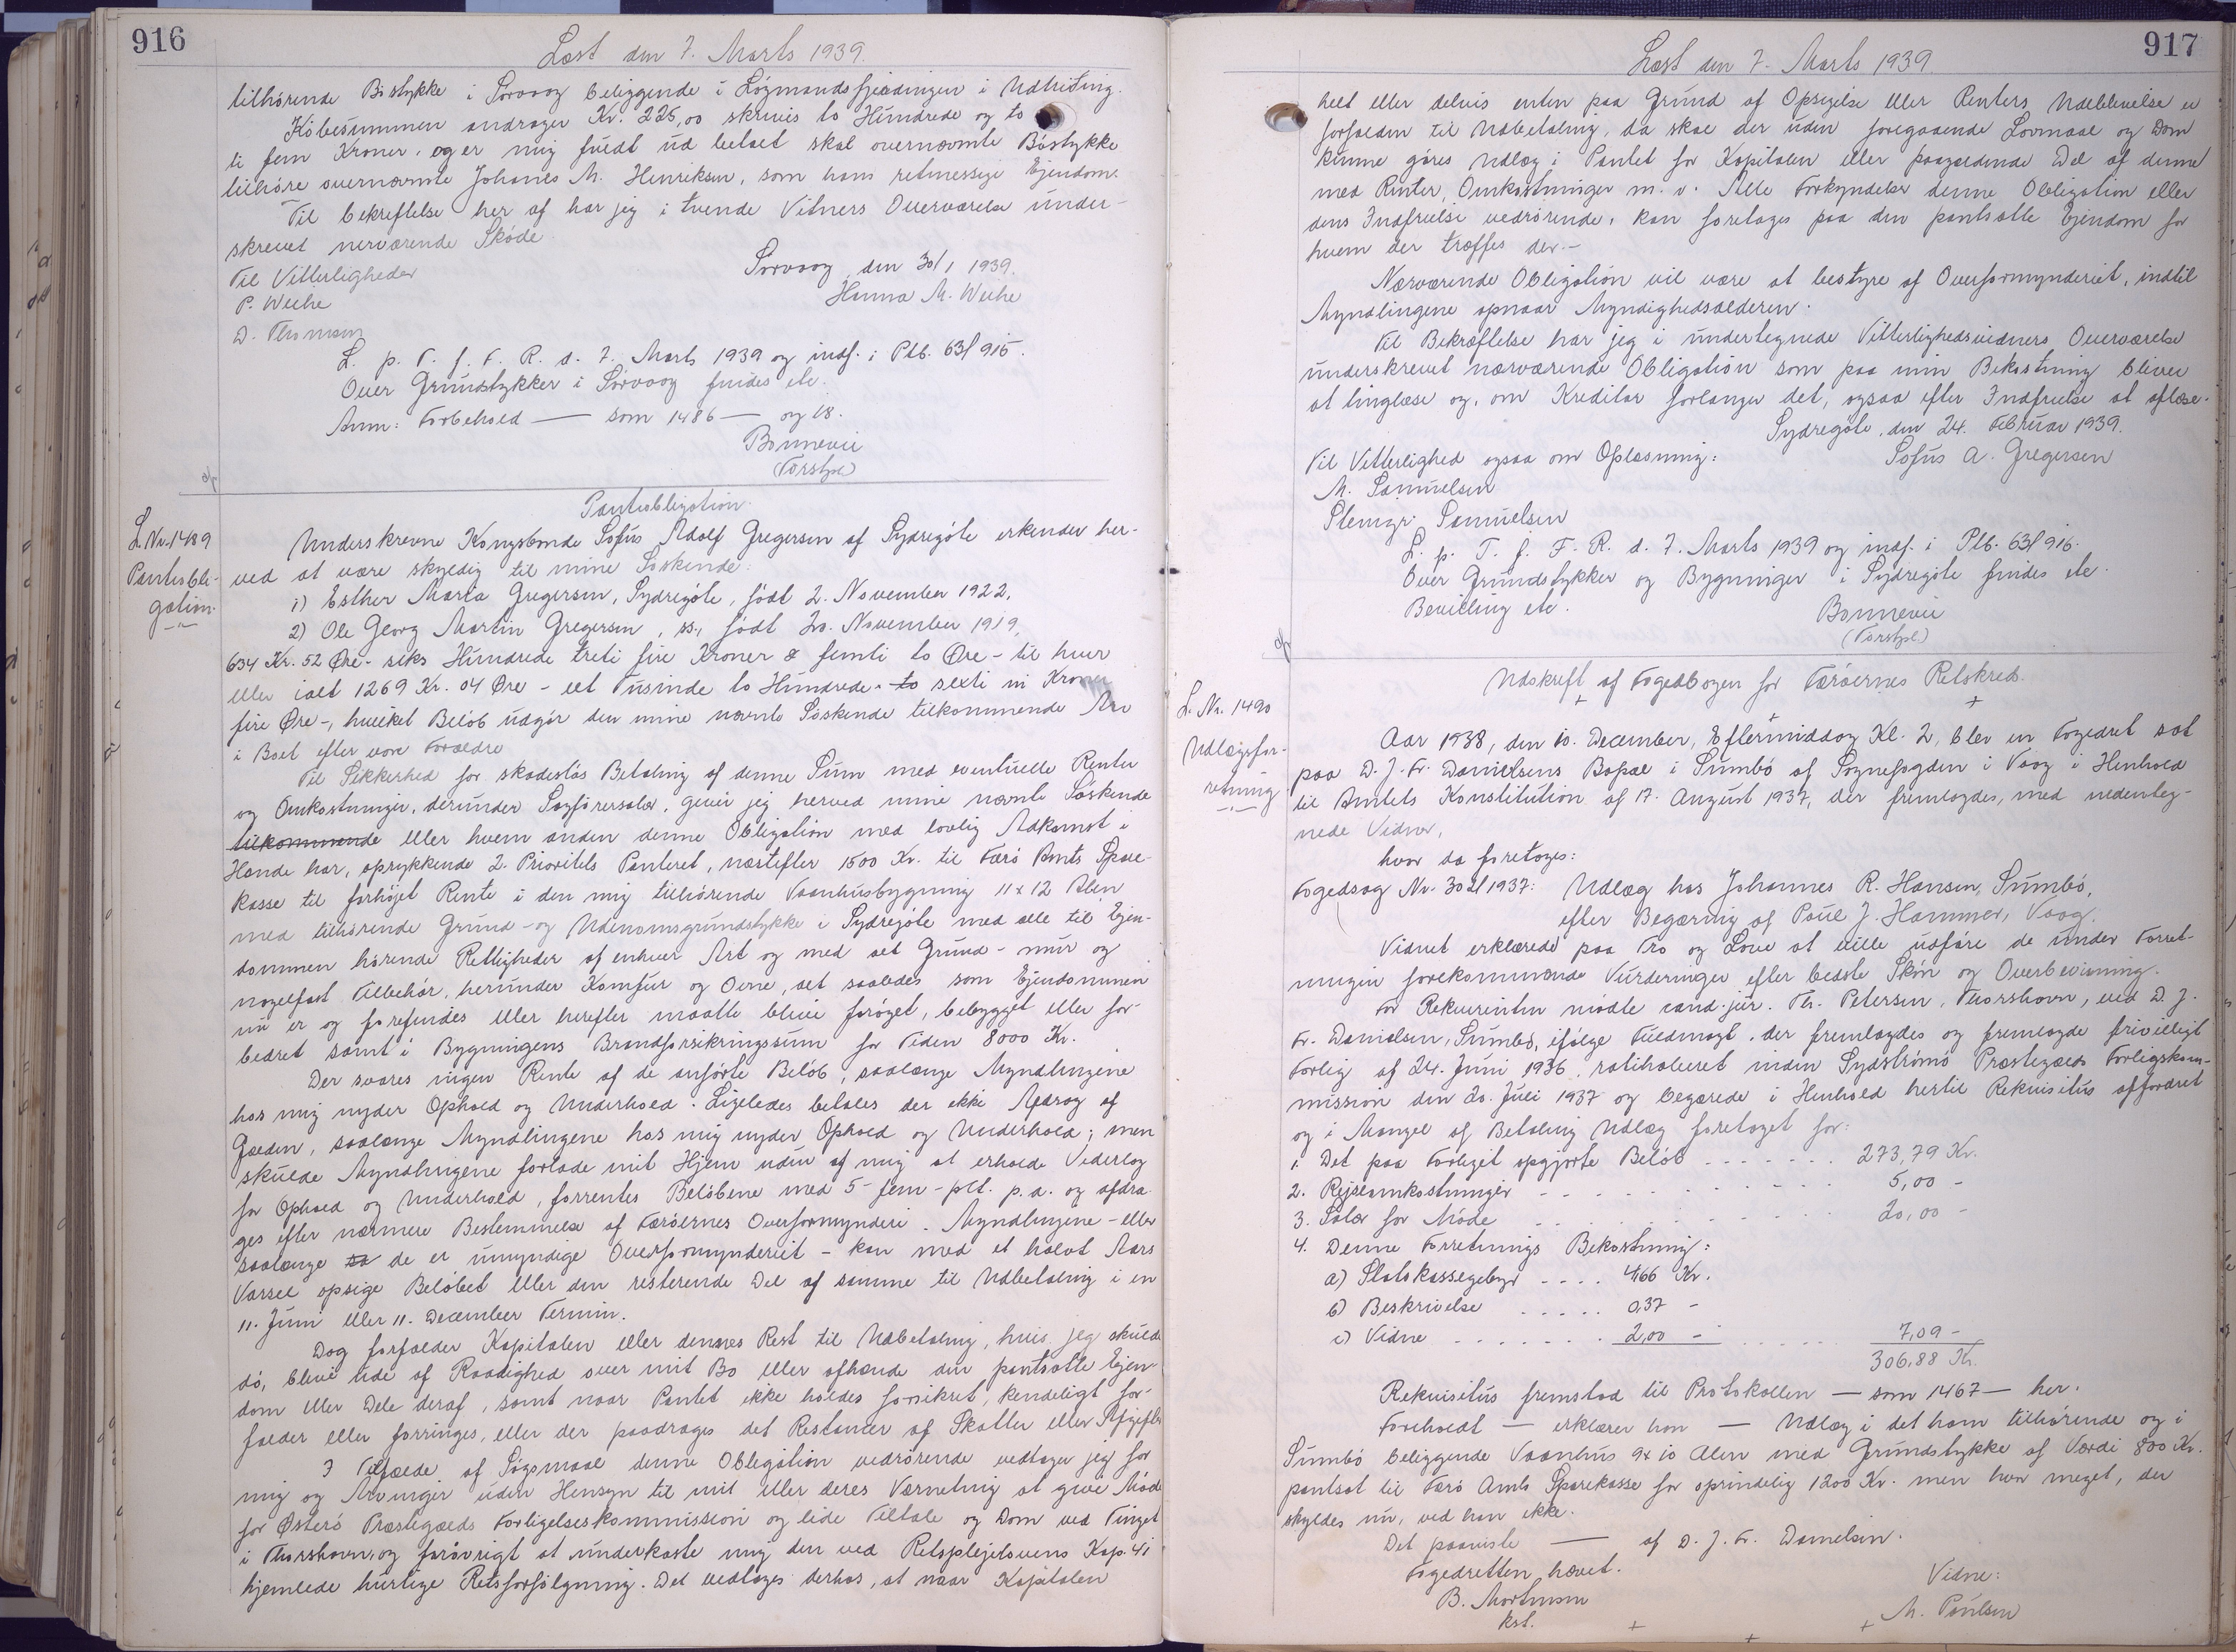 916
Læst den 7. Marts 1939.
tilhørende Bøstykke i Sørvaag beliggende i Løgmandsfjerdingen i Udhisting.
Købesummen andrager Kr. 225,00 skrives to Hundrede og to
ti fem Kroner, og er mig fuldt ud betalt skal overnævnte Bøstykke
tilhøre overnævnte Johanes M. Henriksen, som hans retmessige Ejendom.
Til bekreftelse her af har jeg i tvende Vitners Overværelse under-
skrevet nerværende Skøde.
Til Vitterligheder
Sørvaag, den 30/1 1939.
P. Weihe
Hanna M. Weihe
D. Thomsen
L. p. T. f. F. R. d. 7. Marts 1939 og indf. i Ptb. 63/915.
Over Grundstykker i Sørvaag findes ete.
Anm: Forbehold — som 1486 — og is.
Bonnevie
(Forstpl)
L. Nr. 1489
Pantobli-
gation.
Pantobligation.
Underskrevne Kongsbonde Sofus Adolf Gregersen af Sydregöte erkender her-
ved at være skyldig til mine Søskende:
1) Esther Maria Gregersen, Sydregöte, født 2. November 1922,
2) Ole Georg Martin Gregersen, ss., født 20. November 1919,
634 Kr. 52 Øre - seks Hundrede treti fire Kroner & femti to Øre - til hver
eller ialt 1269 Kr. 04 Øre - eet Tusinde to Hundrede to sexti ni Kroner
fire Øre -, hvilket Beløb udgør den mine nævnte Søskende tilkommende Arv
i Boet efter vore Forældre
Til Sikkerhed for skadesløs Betaling af denne Sum med eventuelle Renter
og Omkostninger, derunder Sagførersalær, giver jeg herved mine nævnte Søskende
tilkommende eller hvem anden denne Obligation med lovlig Adkomst i
Hænde har, oprykkende 2. Prioritets Panteret, næstefter 1500 Kr. til Færø Amts Spare-
kasse til forhøjet Rente i den mig tilhørende Vaanhusbygning 11x12 Alen
med tilhørende Grund- og Udenomsgrundstykke i Sydregöte med alle til Ejen-
dommen hørende Rettigheder af enhver Art og med alt Grund- mur og
nagelfast Tilbehør, herunder Komfur og Ovne, alt saaledes som Ejendommen
nu er og forefindes eller herefter maatte blive forøget, bebygget eller for-
bedret samt i Bygningens Brandforsikringssum for Tiden 8000 Kr.
Der svares ingen Rente af de anførte Beløb, saalænge Myndlingene
hos mig nyder Ophold og Underhold. Ligeledes betales der ikke Afdrag af
Gælden, saalænge Myndlingene hos mig nyder Ophold og Underhold; men
skulde Myndlingene forlade mit Hjem uden af mig at erholde Vederlag
for Ophold og Underhold, forrentes Beløbene med 5 - fem - pCt. p. a. og afdra-
ges efter nærmere Bestemmelse af Færøernes Overformynderi. Myndlingene - eller
saalænge so de er umyndige Overformynderiet - kan med et halvt Aars
Varsel opsige Beløbet eller den resterende Del af samme til Udbetaling i en
11. Juni eller 11. December Termin.
Dog forfalder Kapitalen eller dennes Rest til Udbetaling, hvis jeg skulde
dø, blive ude af Raadighed over mit Bo eller afhænde den pantsatte Ejen-
dom eller Dele deraf, samt naar Pantet ikke holdes forsikret, kendeligt for-
falder eller forringes, eller der paadrages det Restancer af Skatter eller Afgifter
I Tilfælde af Søgsmaal denne Obligation vedrørende vedtager jeg for
mig og Arvinger uden Hensyn til mit eller deres Værneting at give Møde
for Østerø Præstegælds Forligelseskommission og lide Tiltale og Dom ved Tinget
i Thorshavn, og forøvrigt at underkaste mig den ved Retsplejelovens Kap. 41
hjemlede hurtige Retsforfølgning. Det vedtages derhos, at naar Kapitalen
917
Læst den 7. Marts 1939.
helt eller delvis enten paa Grund af Opsigelse eller Renters Udeblivelse er
forfalden til Udbetaling, da skal der uden foregaaende Lovmaal og Dom
kunne gøres Udlæg i Pantet for Kapitalen eller paagældende Del af denne
med Renter, Omkostninger m. v. Alle Forkyndelser denne Obligation eller
dens Indfrielse vedrørende, kan foretages paa den pantsatte Ejendom for
hvem der træffes der.-
Nærværende Obligation vil være at bestyre af Overformynderiet, indtil
Myndlingene opnaar Myndighedsalderen.
Til Bekræftelse har jeg i undertegnede Vitterlighedsvidners Overværelse
underskrevet nærværende Obligation som paa min Bekostning bliver
at tinglæse og, om Kreditor forlanger det, ogsaa efter Indfrielse at aflæse.
Sydregöte, den 24. Februar 1939.
Til Vitterlighed ogsaa om Oplæsning:
Sofus A. Gregersen
M. Samuelsen
Stemgr. Samuelsen
L. p. T. f. F. R. d. 7. Marts 1939 og indf. i Ptb. 63/916.
Over Grundstykker og Bygninger i Sydregöte findes ete.
Bevilling ete.
Bonnevie
(Forstpl.)
L. Nr. 1490
Udlægsfor-
retning
Udskrift af Fogedbogen for Færøernes Retskreds.
Aar 1938, den 10. December, Eftermiddag Kl. 2, blev en Fogedret sat
paa D. J. Fr. Danielsens Bopæl i Sumbø af Sognefogden i Vaag i Henhold
til Amtets Konstitution af 17. August 1937, der fremlagdes, med nedenteg-
nede Vidner,
hvor da foretoges:
Fogedsag Nr. 302/1937: Udlæg hos Johannes R. Hansen, Sumbø,
efter Begæring af Poul J. Hammer, Vaag.
Vidnet erklærede paa Tro og Love at ville udføre de under Forret-
ningen forekommende Vurderinger efter bedste Skøn og Overbevisning.
For Rekvirenten mødte cand. jur. Th. Petersen, Thorshavn, ved D. J.
Fr. Danielsen, Sumbø, ifølge Fuldmagt, der fremlagdes og fremlagde frivilligt
Forlig af 24. Juni 1936, ratihaberet inden Sydstrømø Præstegælds Forligskom-
mission den 20. Juli 1937 og begærede i Henhold hertil Rekvisitus affordret
og i Mangel af Betaling Udlæg foretaget for:
1. Det paa Forliget opgjorte Beløb - - - - - - - 273,79 Kr.
2. Rejseomkostninger - - - - - - - - - - - 5,00 -
3. Salær for Møde - - - - - - - - - - - 20,00 -
4. Denne Forretnings Bekostning:
a) Statskassegebyr - - - - 4,66 Kr.
b) Beskrivelse - - - - - 0,37 -
c) Vidne - - - - - - - 2,00 - - - - - 7,09 -
306,88 Kr.
Rekvisitus fremstod til Protokollen — som 1467 — her.
Foreholdt — erklærer han — Udlæg i det ham tilhørende og i
Sumbø beliggende Vaanhus 9x10 Alen med Grundstykke af Værdi 800 Kr.
pantsat til Færø Amts Sparekasse for oprindelig 1200 Kr. men hvor meget, der
skyldes nu, ved han ikke.
Det paaviste — af D. J. Fr. Danielsen.
Fogedretten hævet.
Vidne:
B. Mortensen
M. Poulsen
kst.